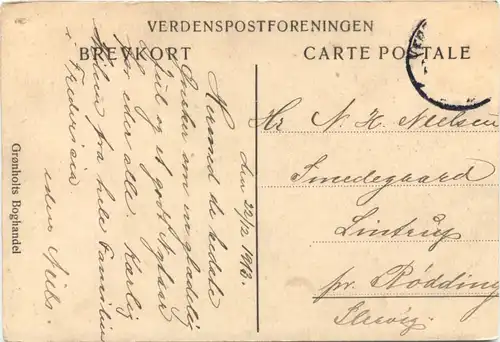 VERDENSPOSTFORENINGEN
BREVKORT
CARTE POSTALE
den 22/12 1913.
Hermed de bedste
Ønsker om en glædelig
Jul og et godt Nytaar
for eder alle. Kærlig
Hilsen fra hele Familien
i Fredericia
eders
Grønholts Boghandel
Hr. N. H. Nielsen
Smedegaard
Lintrup
pr. Rødding
Slesvig.